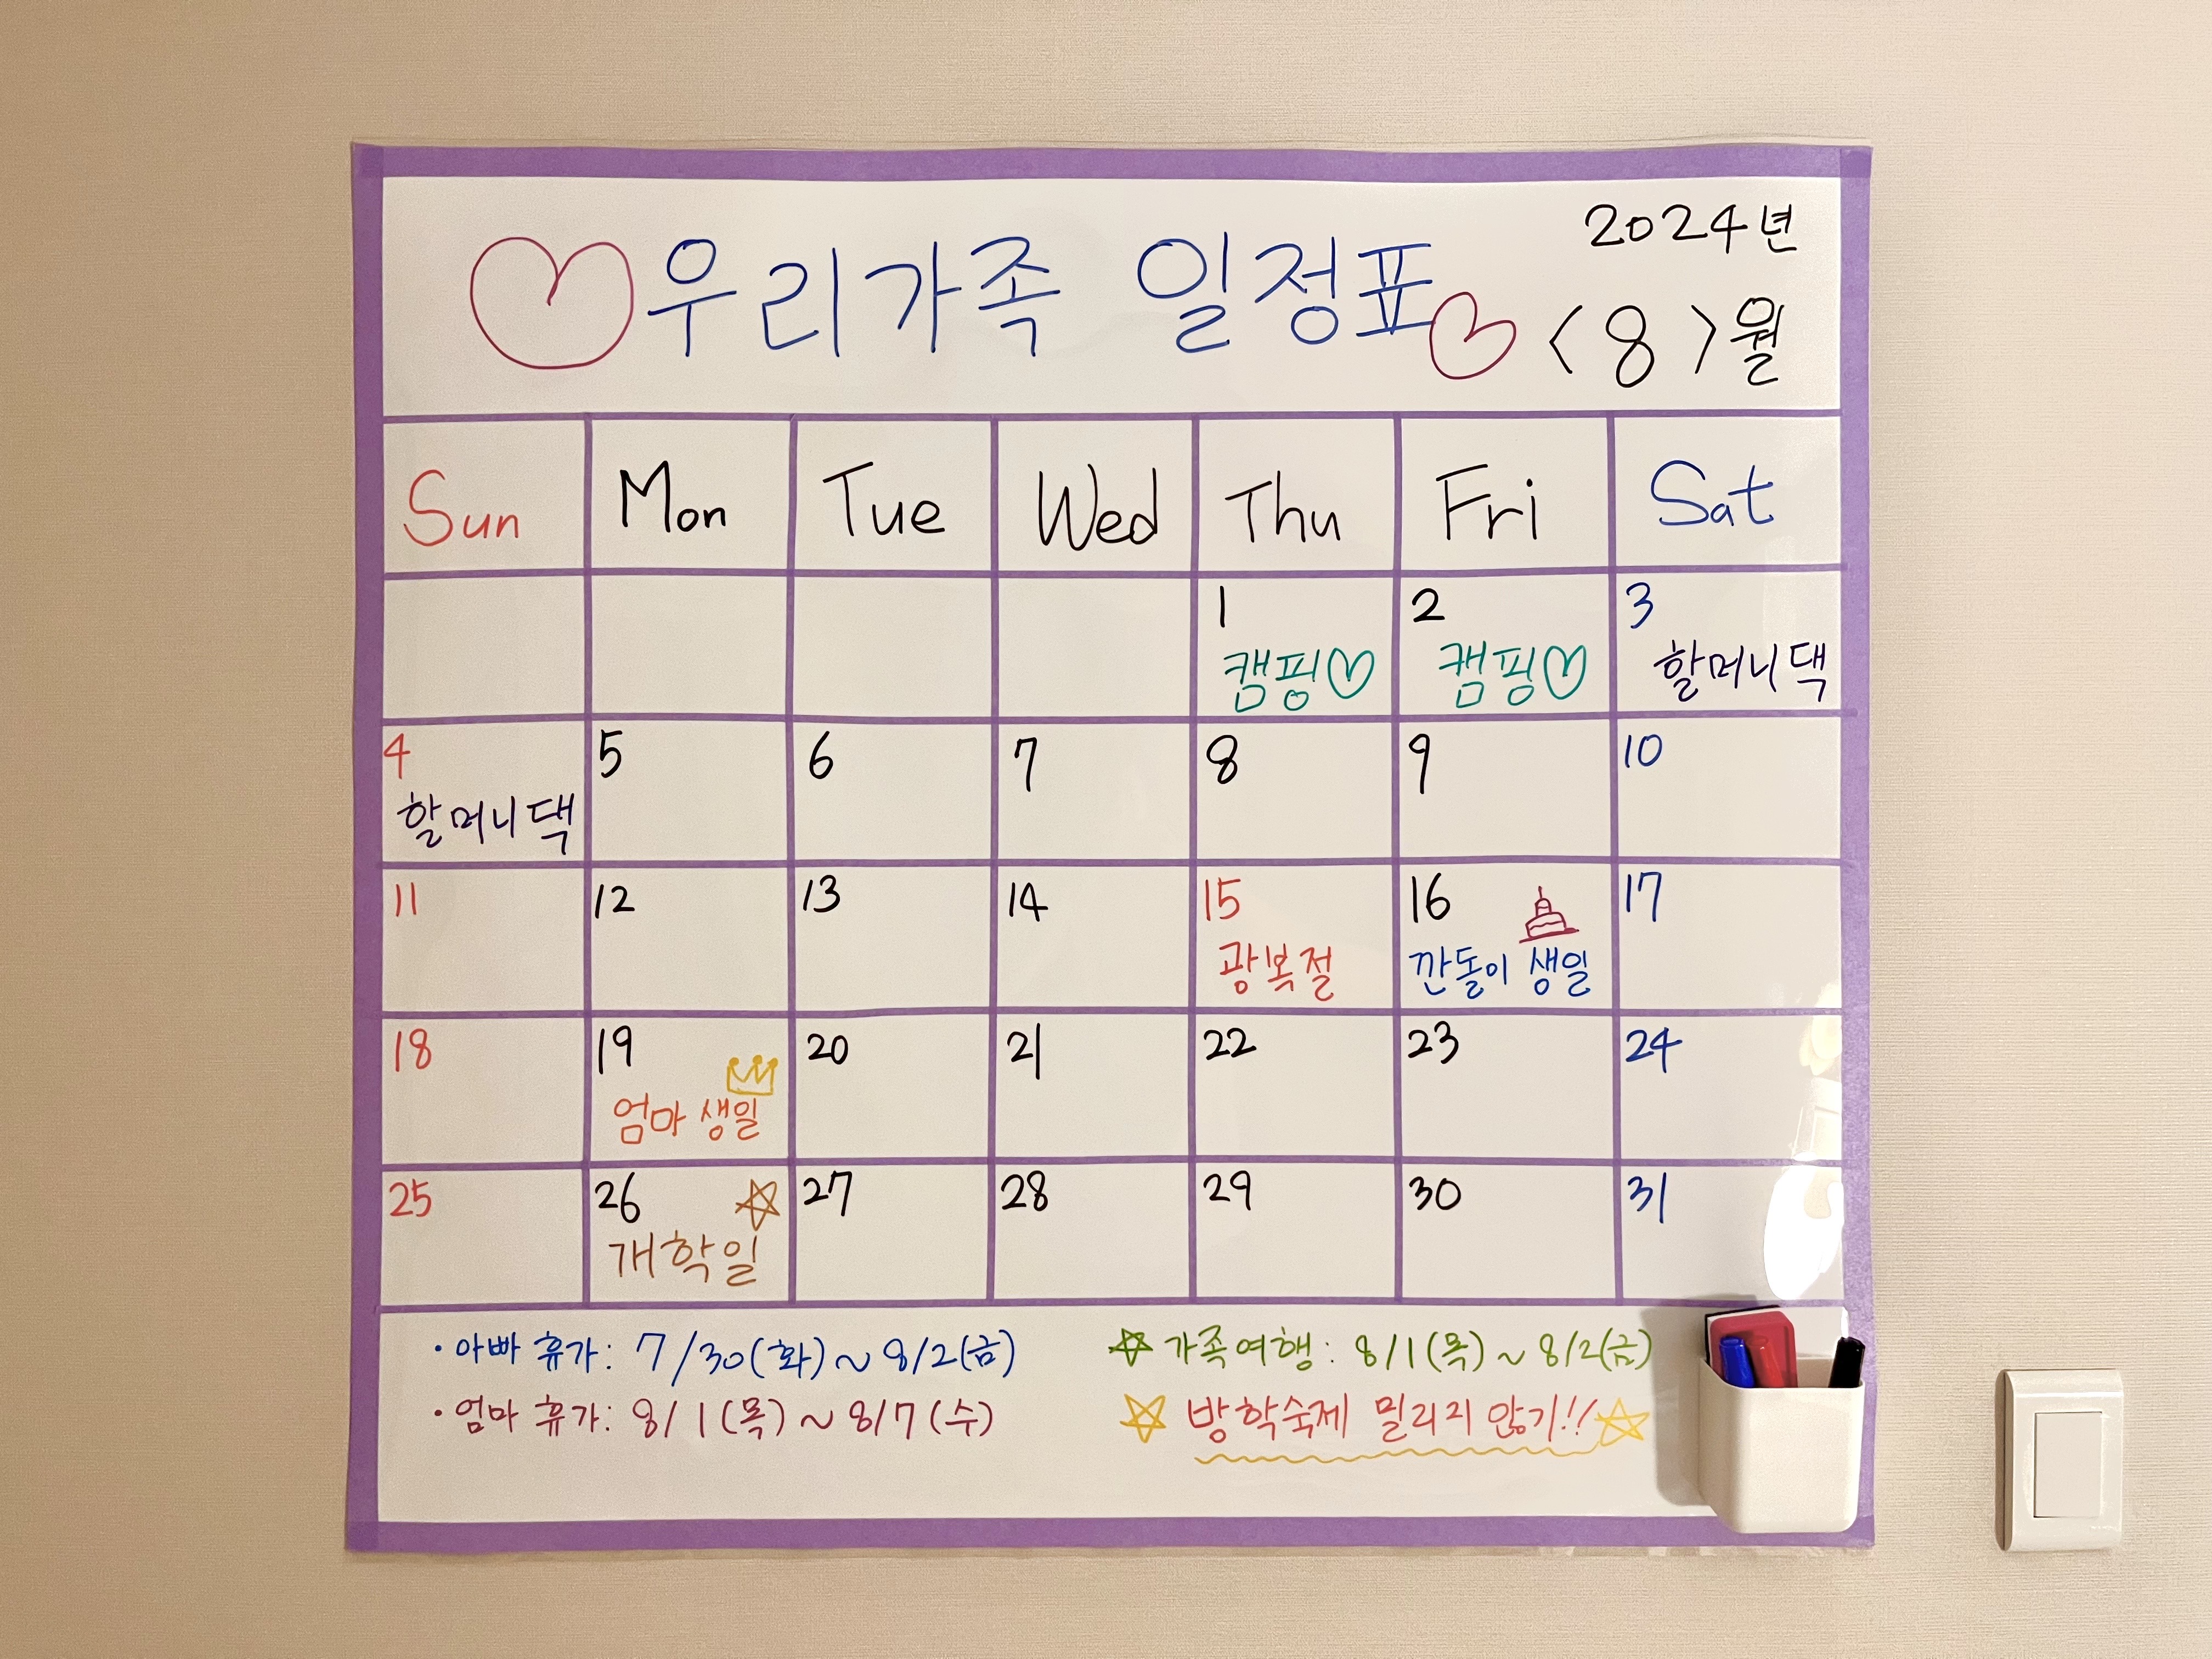 ♡우리가족 일정표♡
2024년
<8>월
Sun Mon Tue Wed Thu Fri Sat
1 2 3
캠핑♡ 캠핑♡ 할머니댁
4 5 6 7 8 9 10
할머니댁
11 12 13 14 15 16 17
광복절 깐돌이 생일
18 19 20 21 22 23 24
엄마 생일
25 26 ☆ 27 28 29 30 31
개학일
· 아빠 휴가: 7/30(화)~8/2(금)
· 엄마 휴가: 8/1(목)~8/7(수)
☆ 가족여행: 8/1(목)~8/2(금)
☆ 방학숙제 밀리지 않기!!☆